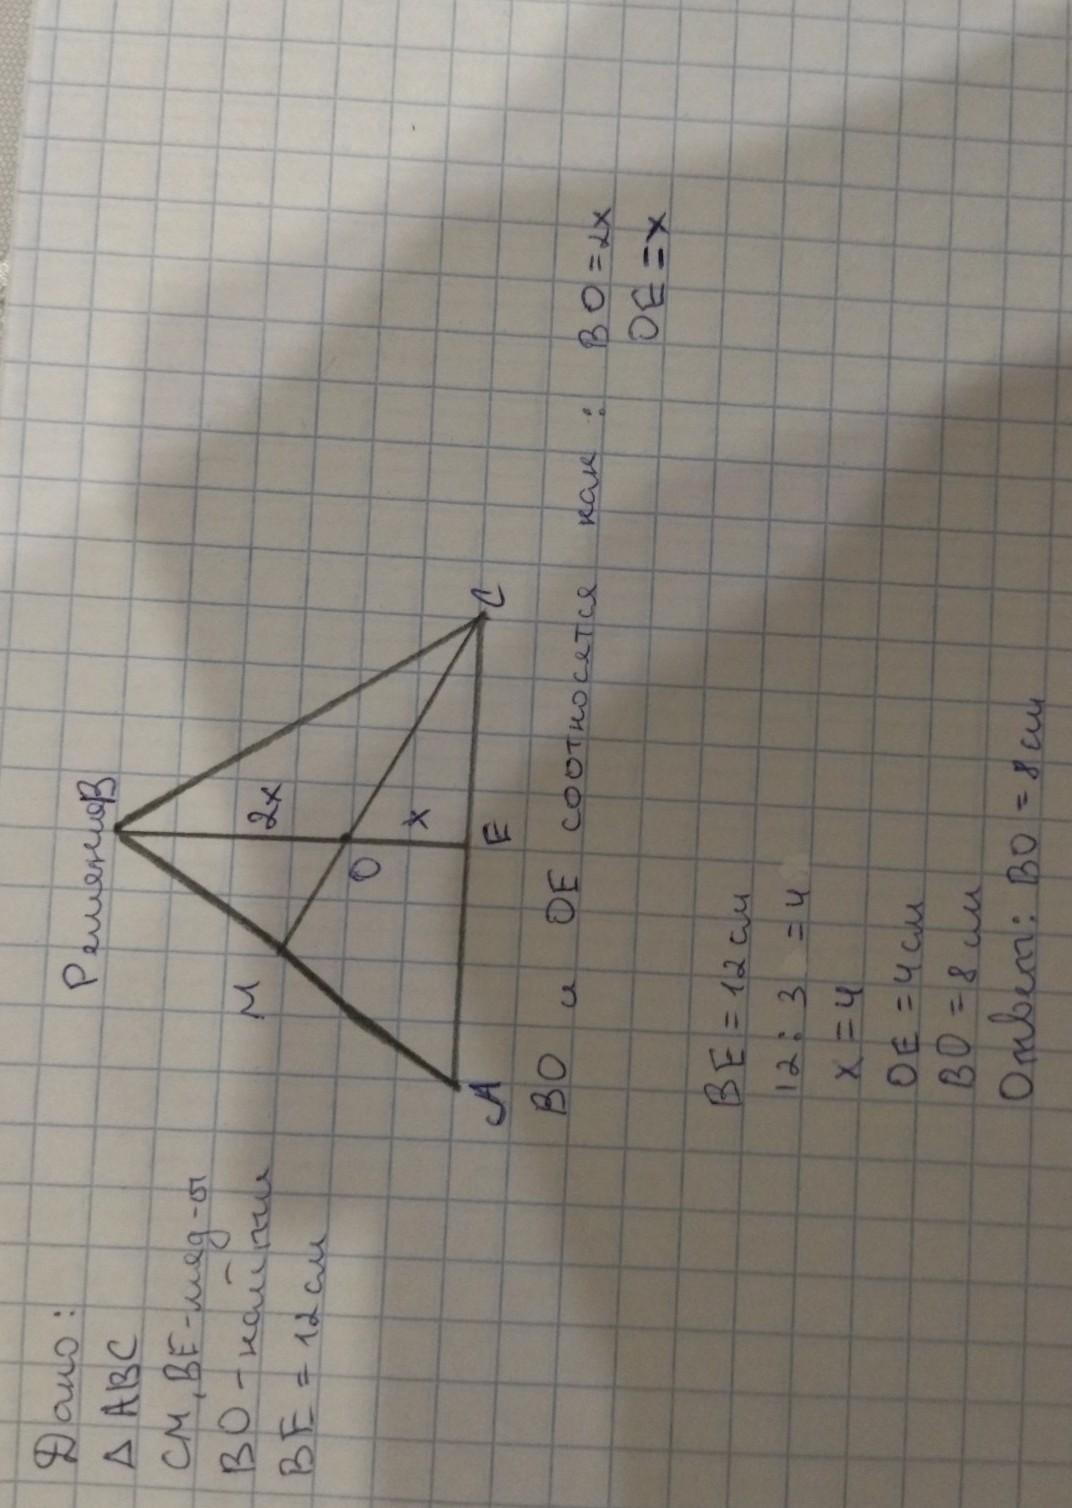 Дано:
Δ ABC
CM, BE - мед-ы
BO - найти
BE = 12 см
Решение
B
M
2x
O
x
A
E
C
BO и OE соотносятся как : BO = 2x
OE = x
BE = 12 см
12 : 3 = 4
x = 4
OE = 4 см
BO = 8 см
Ответ: BO = 8 см